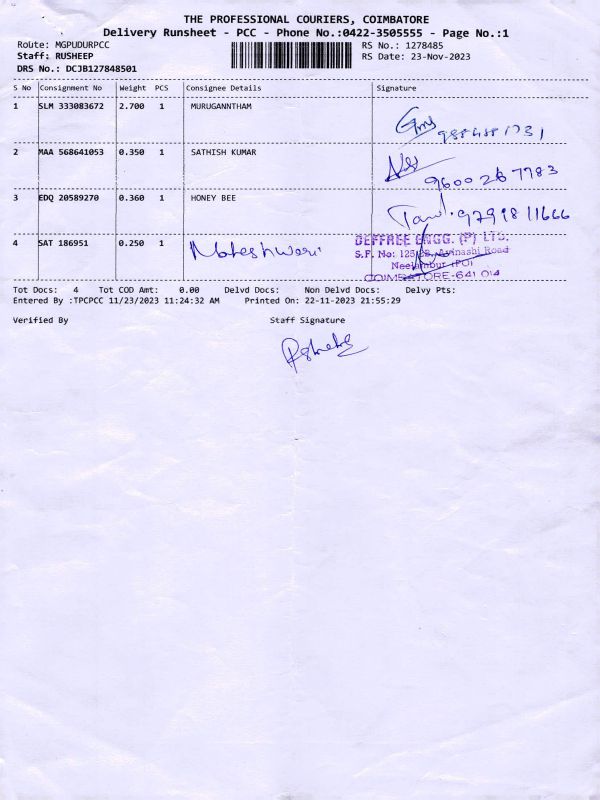 THE PROFESSIONAL COURIERS, COIMBATORE
Delivery Runsheet - PCC - Phone No.:0422-3505555 - Page No.:1
Route: MGPUDURPCC RS No.: 1278485
Staff: RUSHEEP RS Date: 23-Nov-2023
DRS No.: DCJB127848501
S No Consignment No Weight PCS Consignee Details Signature
1 SLM 333083672 2.700 1 MURUGANNTHAM
2 MAA 568641053 0.350 1 SATHISH KUMAR
9600267783
3 EDQ 20589270 0.360 1 HONEY BEE
9791811666
4 SAT 186951 0.250 1 Maheshwari
DEFFREE ENGG. (P) LTD.
S.F. No: Avinashi Road
Neelambur (PO)
COIMBATORE-641 014
Tot Docs: 4 Tot COD Amt: 0.00 Delvd Docs: Non Delvd Docs: Delvy Pts:
Entered By :TPCPCC 11/23/2023 11:24:32 AM Printed On: 22-11-2023 21:55:29
Verified By Staff Signature